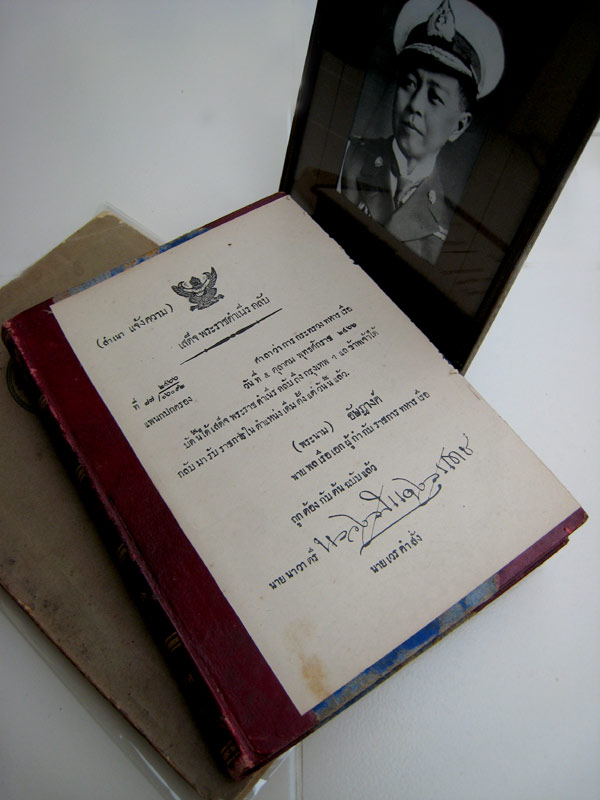 (สำเนา แจ้งความ)
เสด็จ พระราชดำเนิร กลับ
ที่ ๘๗
แพนกปกครอง
ศาลาว่า การ กระทรวง ทหาร เรือ
วัน ที่ ๕ ตุลาคม พุทธศักราช
บัดนี้ได้ เสด็จ พระราช ดำเนิร กลับ ถึง กรุงเทพ ฯ แล ข้าพเจ้าได้
กลับ มา รับ ราชการใน ตำแหน่ง เดิม ตั้ง แต่ วัน นี้ แล้ว.
(พระนาม) อัษฎางค์
นาย พลเรือเอก ผู้ กำ กับ ราชการ ทหาร เรือ
ถูก ต้อง กับ ต้น ฉบับ แล้ว
นาย นาวา ตรี
นาย เวร คำ สั่ง